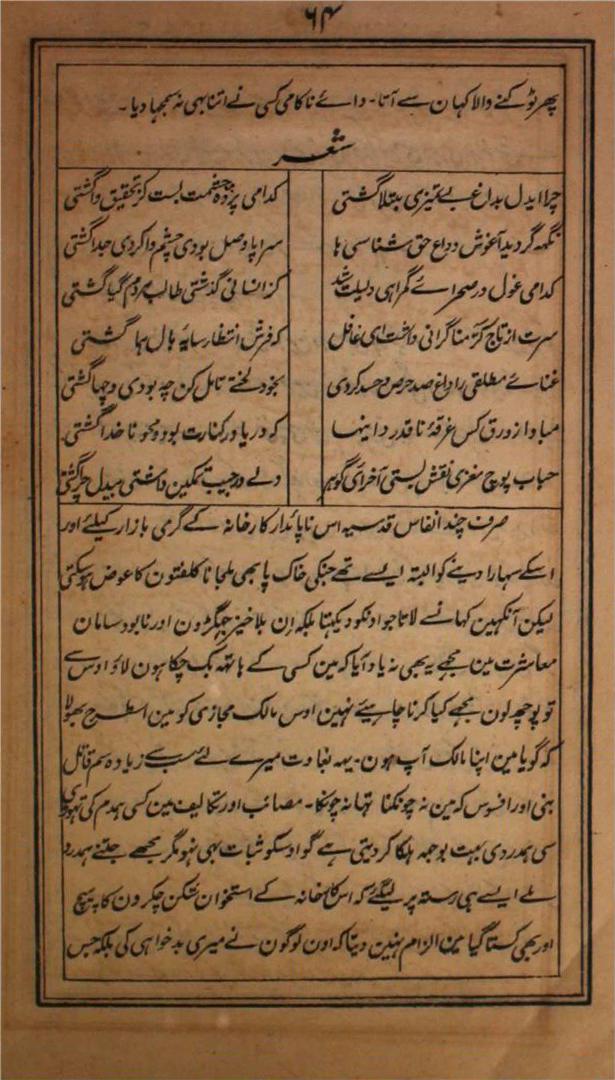 ۶۴
پھر ٹوکنے والا کہان سے آتا۔ واے ناکامی کسی نے اتنا بہی نہ سمجہا دیا۔
شعر
چرا ایدل بداغ بے تمیزی مبتلا گشتی کدامی پردہ چشمت بست کز تحقیق وا گشتی
نگہ گردید آغوش وداع حق شناسی ہا سراپا وصل بودی چشم وا کردی جدا گشتی
کدامی غول در صحراے گمراہی دلیلت شد کز انسانی گذشتی طالب مردم گیا گشتی
سرت از تاج کرّمنا گرانی داشت ای غافل کہ فرش انتظار سایۂ بال ہما گشتی
غناے مطلقی را داغ صد حرص و حسد کردی بخود لختے تامل کن چہ بودی و چہا گشتی
مباد از ورق کس غرقۂ ناقدر دانیہا کہ دریا در کنارت بود و محو ناخدا گشتی
حباب پوچ مغزی نقش بستی آخر ای گوہر ولے در جیب تمکین داشتی بیدل چرا گشتی
صرف چند انفاس قدسیہ اس ناپائدار کارخانہ کے گرمی بازار کیلئے اور
اسکے سہارا دینے کو البتہ ایسے تھے جنکی خاک پا بھی ملجانا کلفتون کا عوض ہوسکتی
لیکن آنکہین کہانسے لاتا جو اونکو دیکہتا بلکہ ان بلا خیز جہگڑون اور نابود سامان
معاشرت مین مجہے یہ بھی نہ یاد آیا کہ مین کسی کے ہاتہہ بک چکا ہون لاؤ اوس سے
تو پوچہہ لون مجہے کیا کرنا چاہیئے نہین اوس مالک مجازی کو مین اسطرح بھولا
کہ گویا مین اپنا مالک آپ ہون۔ یہہ بغاوت میرے لئے سب سے زیادہ سم قاتل
بنی اور افسوس کہ مین نہ چونکنا تہا نہ چونکا۔ مصائب اور تکالیف مین کسی ہمدم کی تہوڑی
سی ہمدردی بہت بوجہہ ہلکا کردیتی ہے گو اوسکو ثبات بہی نہو مگر مجھے جتنے ہمدرد
ملے ایسے ہی رستہ پر لیگئے کہ اس کارخانہ کے استخوان شکن چکرون کا پیچ
اور بھی کستا گیا مین الزام نہین دیتا کہ اون لوگون نے میری بدخواہی کی بلکہ جس